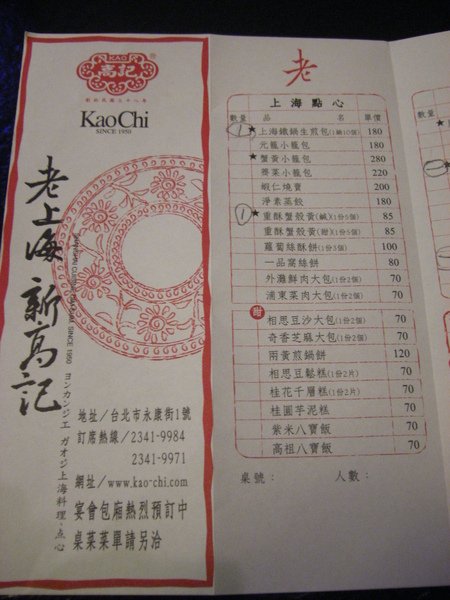 KAO
高記
®
創於民國三十八年
KaoChi
SINCE 1950
老上海新高記
SHANGHAI CUISINE ORIGINAL SINCE 1950
ヨンカンジエ ガオジ上海料理・点心
地址/台北市永康街1號
訂席熱線/2341-9984
2341-9971
網址/www.kao-chi.com
宴會包廂熱烈預訂中
桌菜菜單請另洽
老
上海點心
數量 品名 單價
1 ★上海鐵鍋生煎包(1鍋10個) 180
元籠小籠包 180
★蟹黃小籠包 280
薺菜小籠包 220
蝦仁燒賣 200
淨素蒸餃 180
1 ★重酥蟹殼黃(鹹)(1份5個) 85
重酥蟹殼黃(甜)(1份5個) 85
蘿蔔絲酥餅(1份3個) 100
一品窩絲餅 80
外灘鮮肉大包(1份2個) 70
浦東菜肉大包(1份2個) 70
甜
相思豆沙大包(1份2個) 70
奇香芝麻大包(1份2個) 70
兩黃煎鍋餅 120
相思豆鬆糕(1份2片) 70
桂花千層糕(1份2片) 70
桂圓芋泥糕 70
紫米八寶飯 70
高祖八寶飯 70
桌號： 人數：
數量